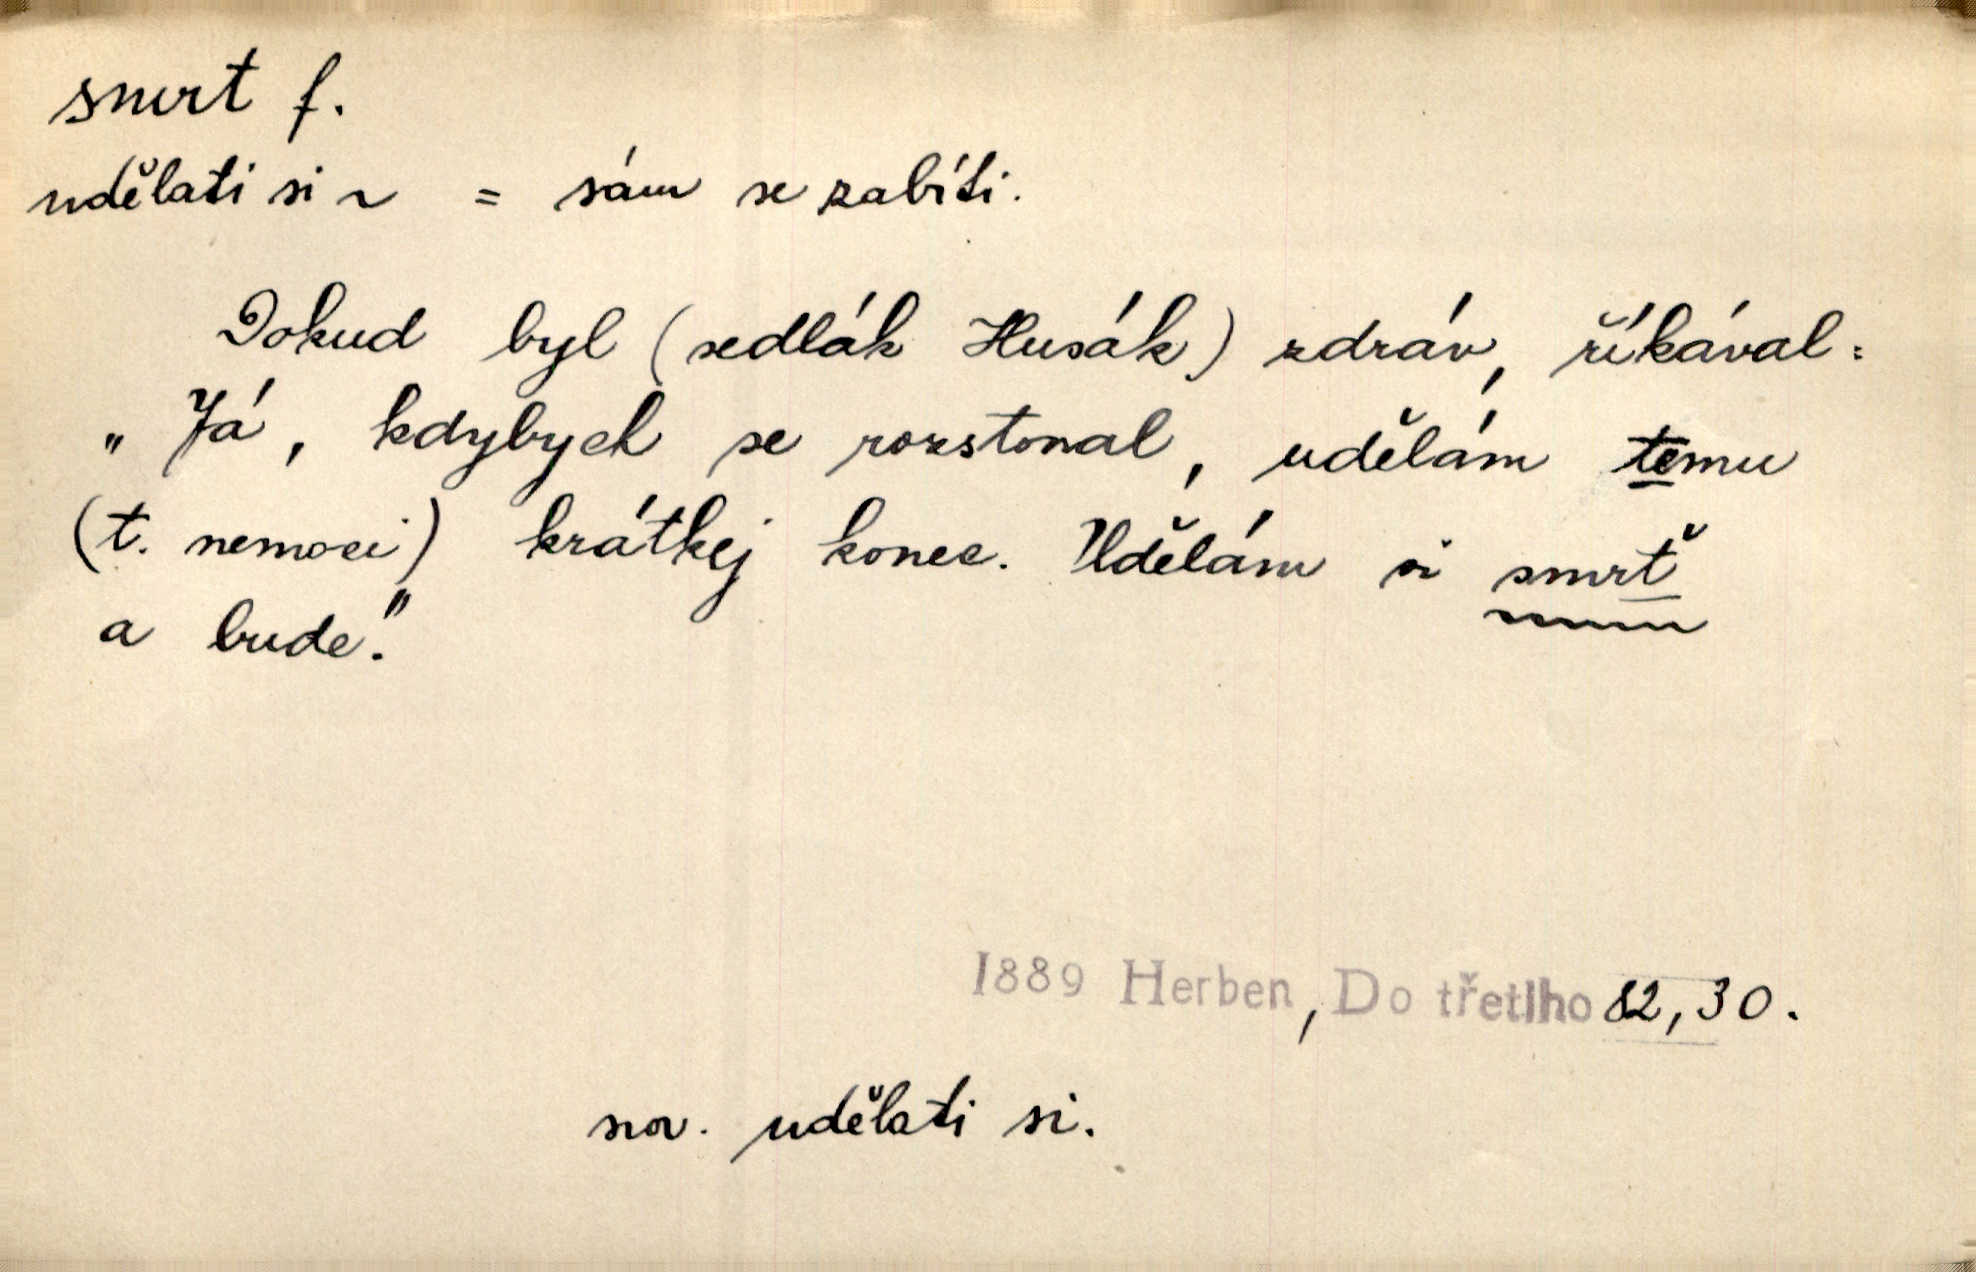 smrt f.
udělati si ~ = sám se zabíti.
Dokud byl (sedlák Husák) zdráv, říkával:
„Já, kdybych se rozstonal, udělám temu
(t. nemoci) krátkej konec. Udělám si smrť
a bude."
1889 Herben, Do třetího 82, 30.
srov. udělati si.